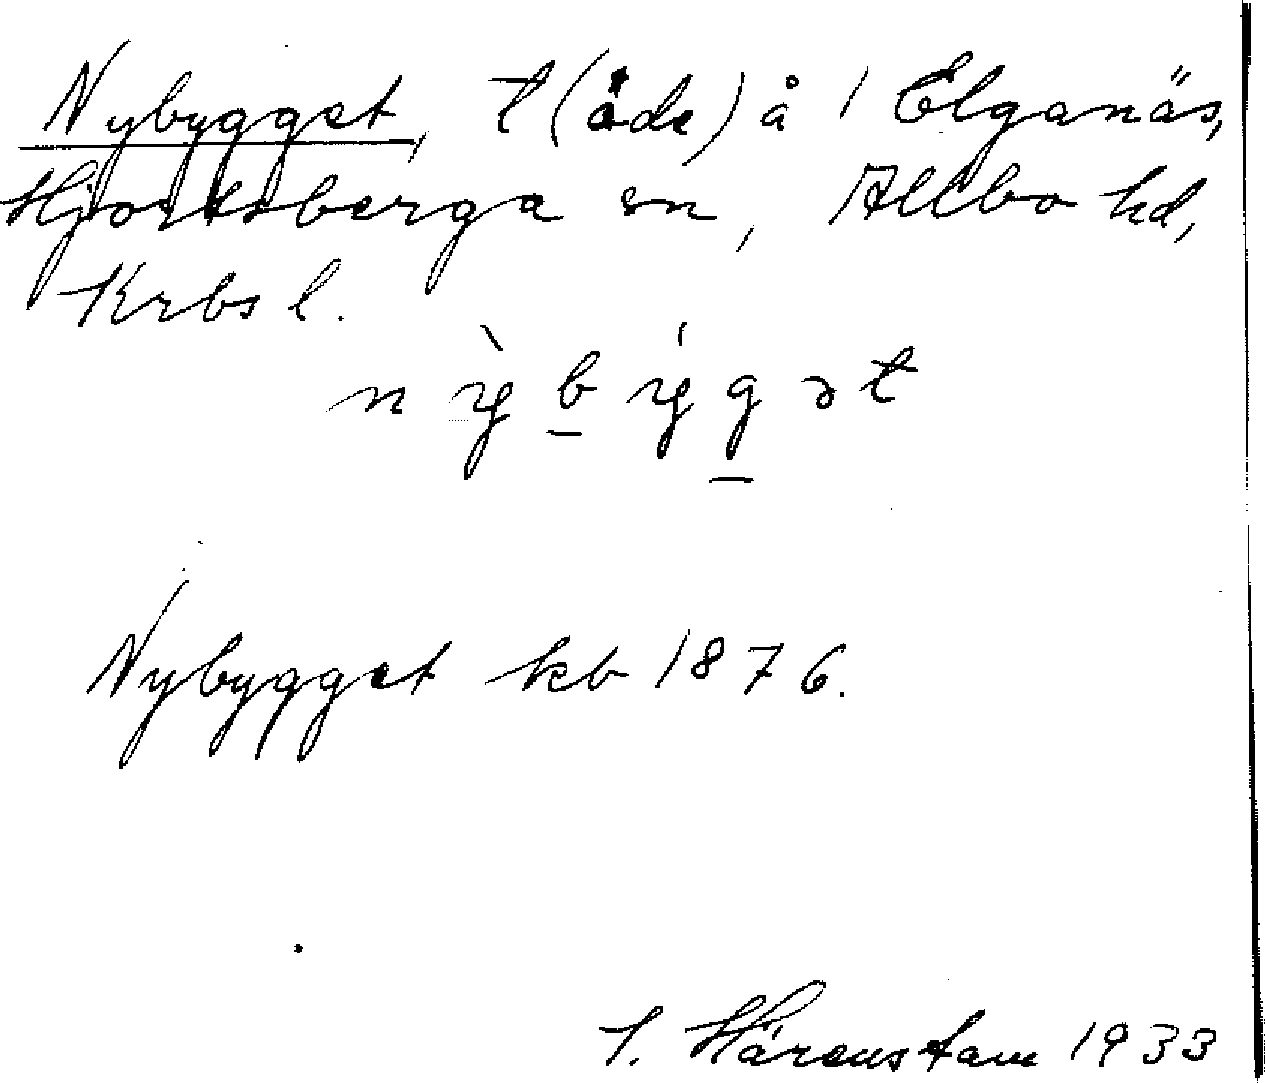 Nybygget, t (öde) å 1 Elganäs,
Hjortsberga sn, Allbo hd,
Krbs l.
nỳbýgət
Nybygget kb 1876.
I. Härenstam 1933